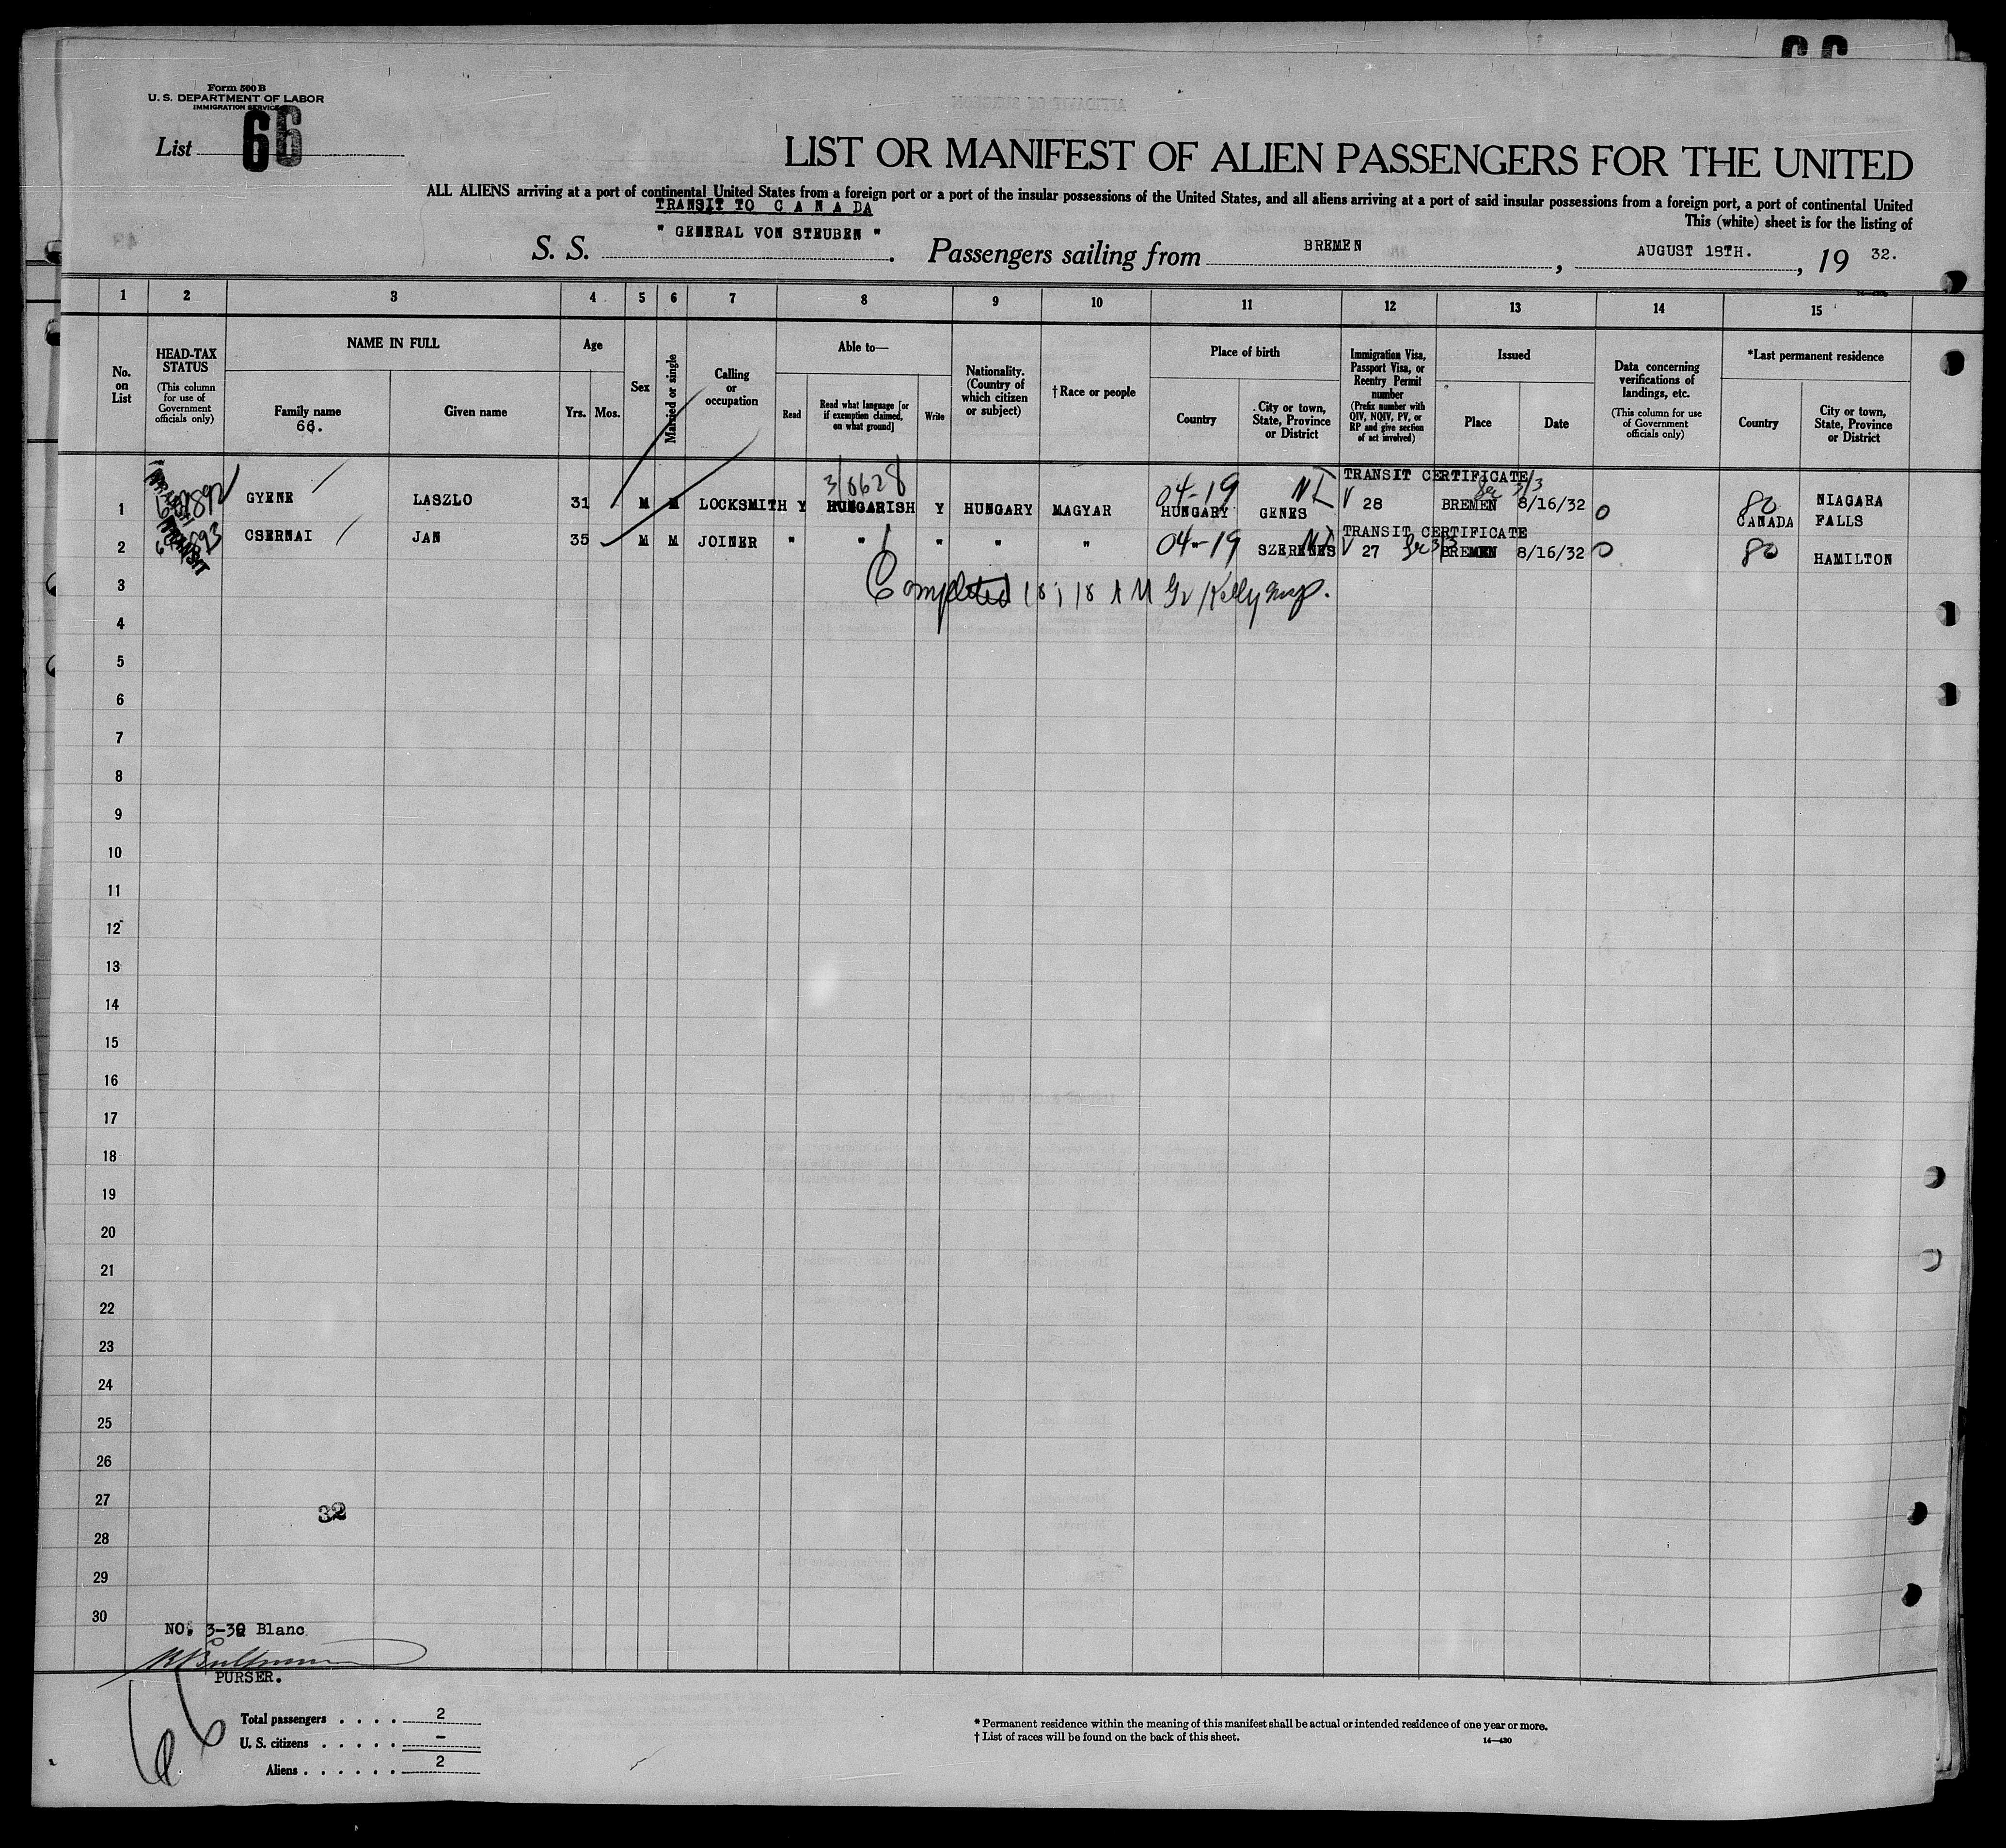 Form 500 B
U. S. DEPARTMENT OF LABOR
IMMIGRATION SERVICE
List 66
LIST OR MANIFEST OF ALIEN PASSENGERS FOR THE UNITED
ALL ALIENS arriving at a port of continental United States from a foreign port or a port of the insular possessions of the United States, and all aliens arriving at a port of said insular possessions from a foreign port, a port of continental United
TRANSIT TO C A N A D A
This (white) sheet is for the listing of
S. S. " GENERAL VON STEUBEN ". Passengers sailing from BREMEN, AUGUST 18TH., 19 32.
1 2 3 4 5 6 7 8 9 10 11 12 13 14 15
No. on List
HEAD-TAX STATUS
(This column for use of Government officials only)
NAME IN FULL
Family name
66.
Given name
Age
Yrs. Mos.
Sex
Married or single
Calling or occupation
Able to—
Read
Read what language [or if exemption claimed, on what ground]
Write
Nationality. (Country of which citizen or subject)
†Race or people
Place of birth
Country
City or town, State, Province or District
Immigration Visa, Passport Visa, or Reentry Permit number
(Prefix number with QIV, NQIV, PV, or RP and give section of act involved)
Issued
Place
Date
Data concerning verifications of landings, etc.
(This column for use of Government officials only)
*Last permanent residence
Country
City or town, State, Province or District
TRANSIT CERTIFICATE
1 GYENE LASZLO 31 M M LOCKSMITH Y HUNGARISH Y HUNGARY MAGYAR 04-19 HUNGARY GENES V 28 BREMEN 8/16/32 80 CANADA NIAGARA FALLS
TRANSIT CERTIFICATE
2 TRANSIT CSERNAI JAN 35 M M JOINER " " " " " 04-19 " V 27 BREMEN 8/16/32 80 HAMILTON
3 Completed
4
5
6
7
8
9
10
11
12
13
14
15
16
17
18
19
20
21
22
23
24
25
26
27
32
28
29
30
NO; 3-30 Blanc
PURSER.
66
Total passengers . . . . 2
U. S. citizens . . . . . –
Aliens . . . . . . 2
* Permanent residence within the meaning of this manifest shall be actual or intended residence of one year or more.
† List of races will be found on the back of this sheet.
14—430